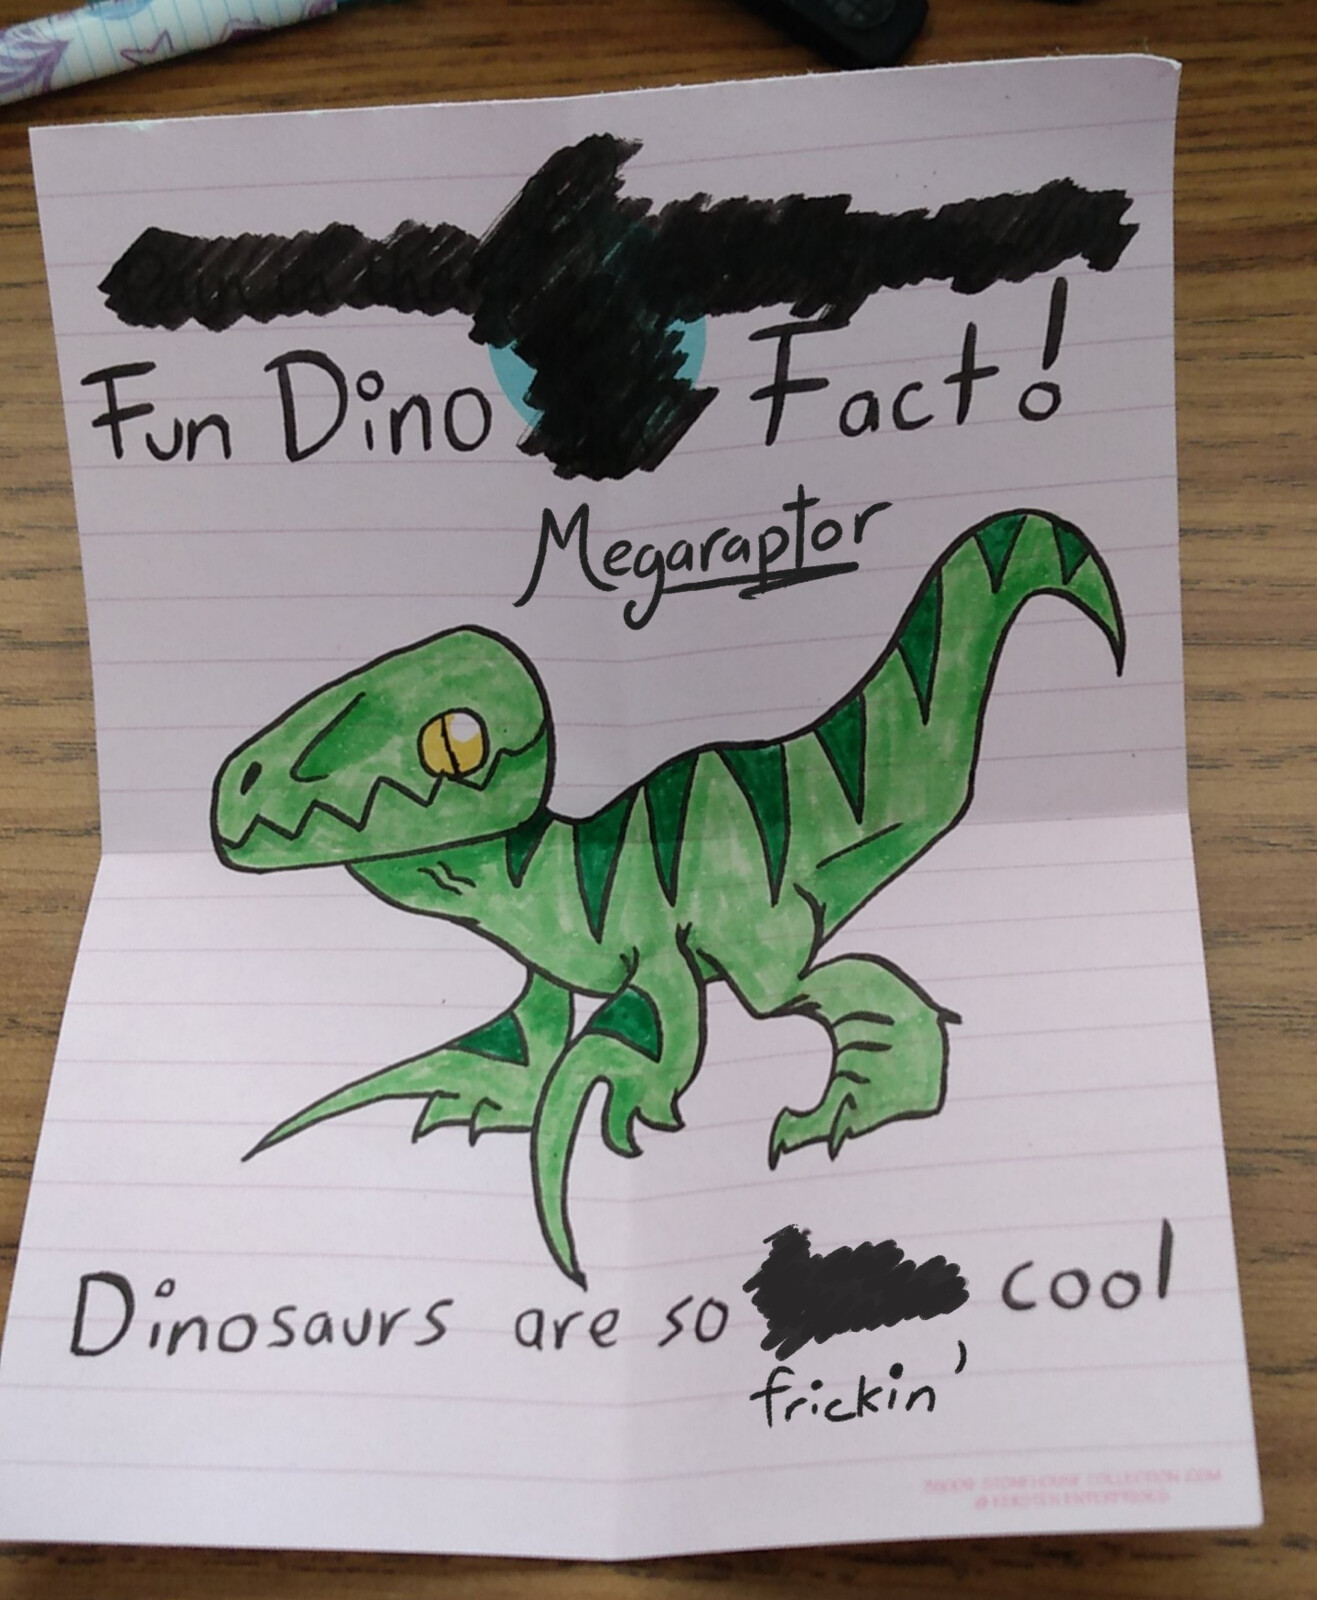 Fun Dino Fact!
Megaraptor
Dinosaurs are so cool
frickin'